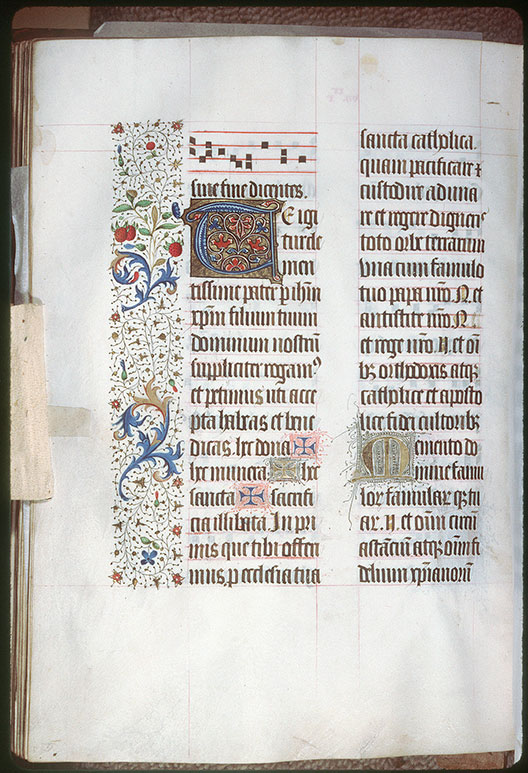 sine fine dicentes.
Te igi
tur cle
men
tissime pater p ihm
xpm filium tuum
dominum nostrum
supplices rogam⁹
et petimus uti acce
pta habeas et bene
dicas. hec dona ✠
hec munera ✠ hec
sancta ✠ sacrifi
cia illibata. In pri
mis que tibi offeri
mus, p ecclesia tua
sancta catholica.
quam pacificare ⁊
custodire aduna
re et regere digneris
toto orbe terrarum
vna cum famulo
tuo papa nro N. et
antistite nro N.
et rege nro. N. et oi
bꝫ orthodoxis atqꝫ
catholice et aposto
lice fidei cultoribꝫ
Memento do
mine famu
lor famular qꝫ tu
ar. N. et oim circu
astancium atqꝫ oim fi
delium xpianorum